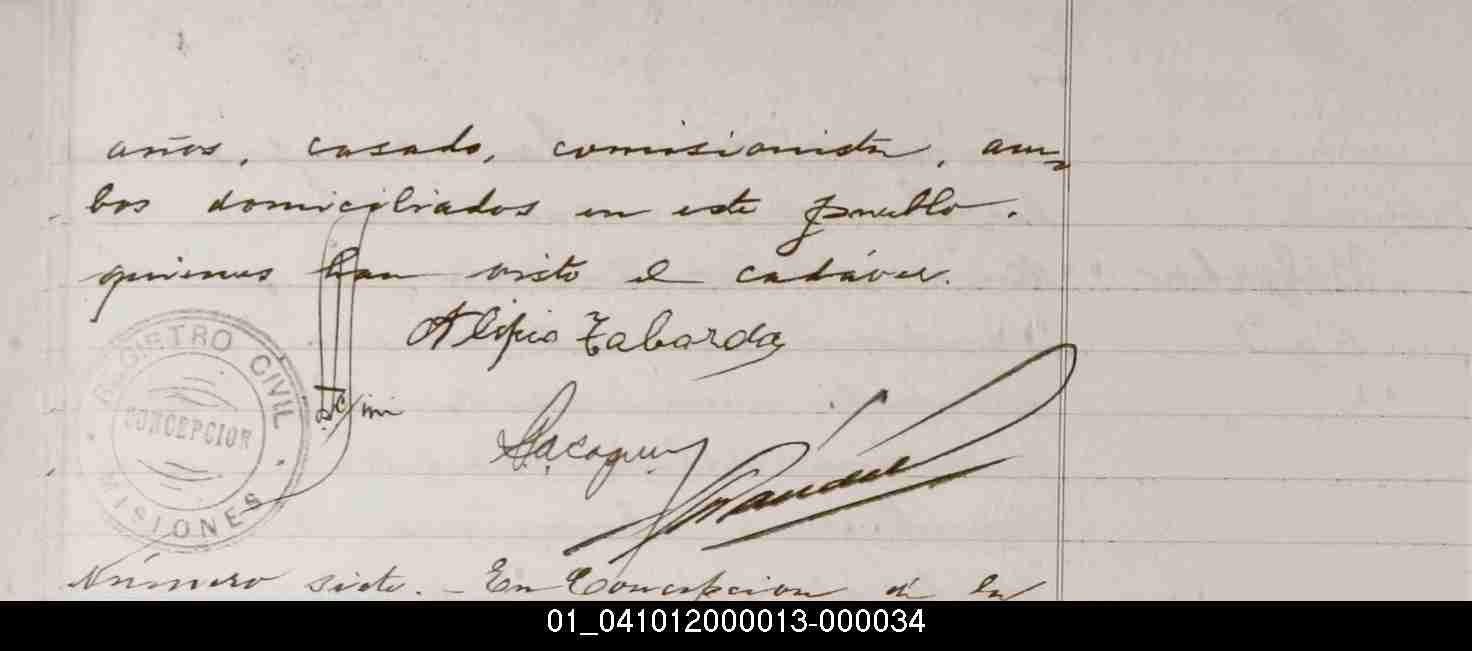 años, casado, comisionista, am-
bos domiciliados en este pueblo.
quienes han visto el cadáver.
Alipio Tabarda
REGISTRO CIVIL
CONCEPCION
MISIONES
Número siete. - En Concepcion de la
01_041012000013-000034